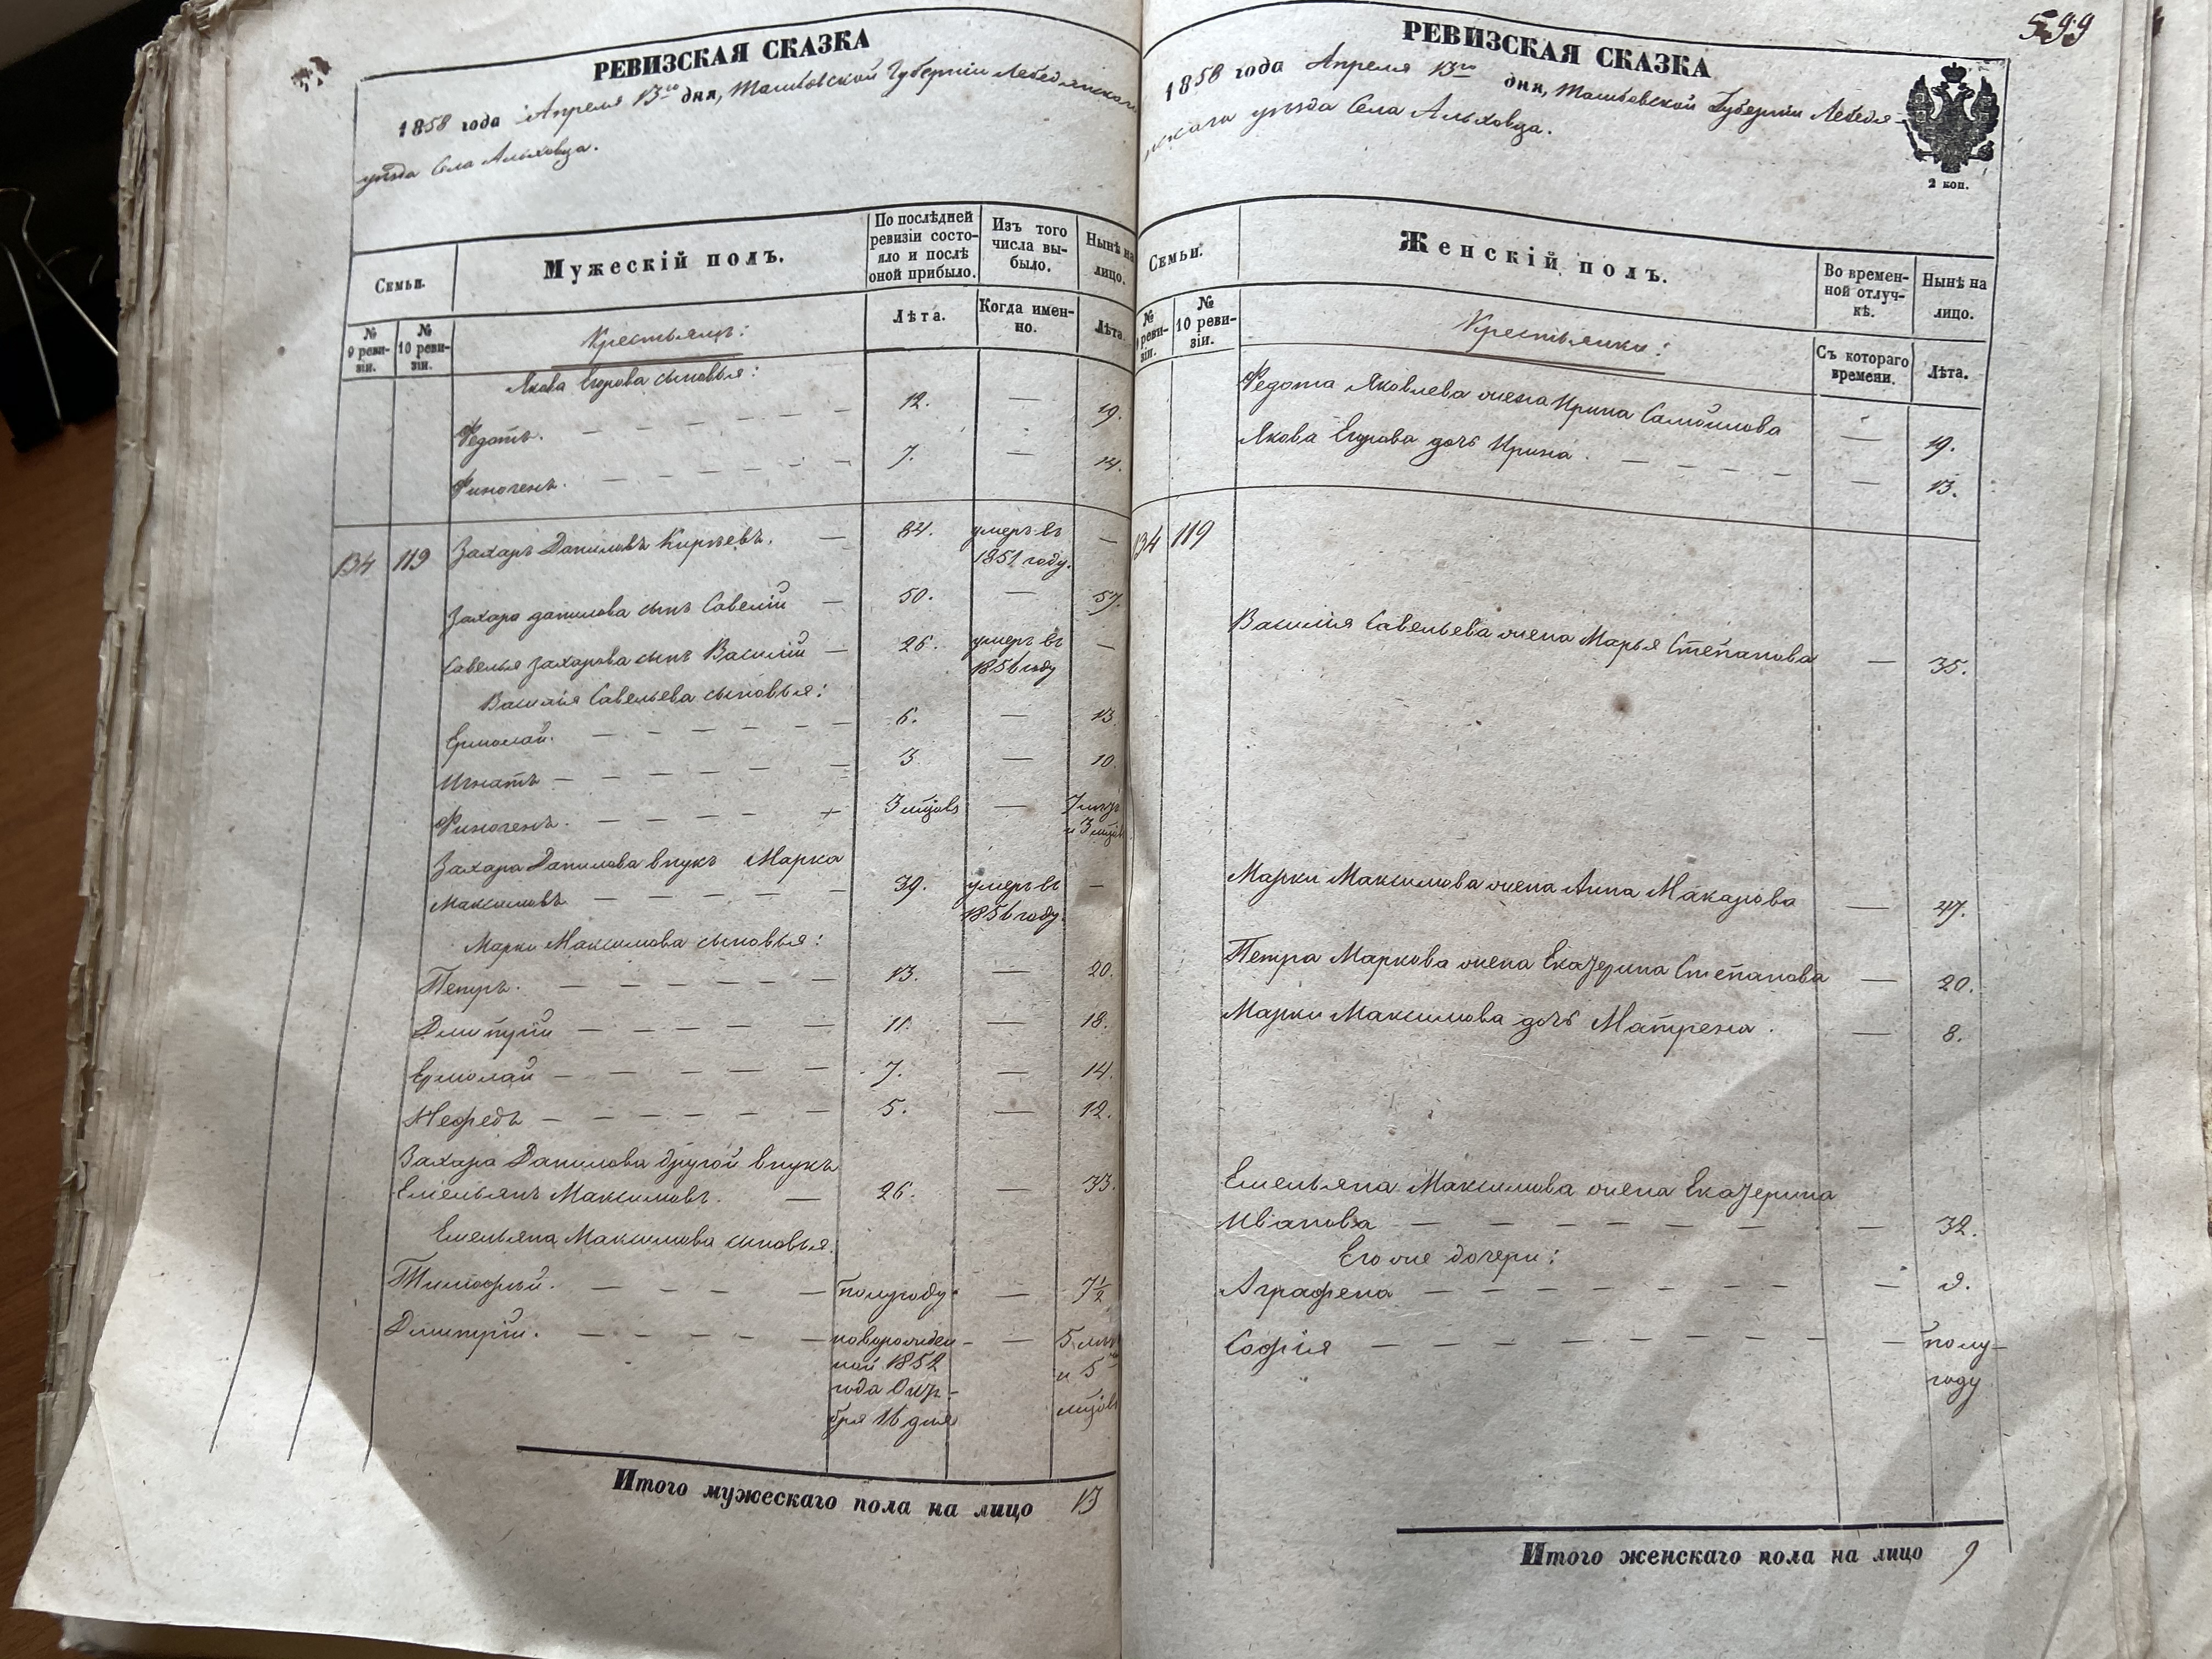 РЕВИЗСКАЯ СКАЗКА
1858 года Апреля 13го дня, Тамбовской Губернiи Лебедянскаго
уѣзда Села Альховца.
Семьи.
Мужескiй полъ.
По послѣдней ревизiи состояло и послѣ оной прибыло.
Изъ того числа выбыло.
Нынѣ на лицо.
№ 9 ревизiи.
№ 10 ревизiи.
Крестьянъ:
Лѣта.
Когда именно.
Лѣта.
Якова Егорова сыновья:
Федотъ. 12. — 19.
Финогенъ. 7. — 14.
134 119 Захаръ Даниловъ Кирѣевъ. — 84. умеръ въ 1851 году. —
Захара Данилова сынъ Савелiй — 50. — 57.
Савелья Захарова сынъ Василiй — 26. умеръ въ 1856 году —
Василiя Савельева сыновья:
Ермолай. 6. — 13.
Игнатъ 3 — 10.
Финогенъ. 3 мцовъ — 7 лѣтъ и 3 мцовъ
Захара Данилова внукъ Марка
Максимовъ 39. умеръ въ 1856 году. —
Марки Максимова сыновья:
Петръ. 13. — 20.
Дмитрiй 11. — 18.
Ермолай 7. — 14.
Мефедъ 5. — 12.
Захара Данилова другой внукъ
Емельянъ Максимовъ. — 26. — 33.
Емельяна Максимова сыновья.
Тимофѣй. полугоду — 7½
Дмитрiй. новорожденной 1852 года Октября 16 дня — 5 лѣтъ и 5 мцовъ
Итого мужескаго пола на лицо 13
599
РЕВИЗСКАЯ СКАЗКА
1858 года Апреля 13го дня, Тамбовской Губернiи Лебедя-
нскаго уѣзда Села Альховца.
2 коп.
Семьи.
Женскiй полъ.
Во временной отлучкѣ.
Нынѣ на лицо.
№ 9 ревизiи.
№ 10 ревизiи.
Крестьянки:
Съ котораго времени.
Лѣта.
Федота Яковлева жена Ирина Самойлова — 19.
Якова Егорова дочь Ирина. — 13.
134 119
Василiя Савельева жена Марья Степанова — 35.
Марки Максимова жена Анна Макарова — 47.
Петра Маркова жена Екатерина Степанова — 20.
Марки Максимова дочь Матрена. — 8.
Емельяна Максимова жена Екатерина
Иванова — 32.
Его же дочери:
Аграфена — 9.
Софiя — полугоду
Итого женскаго пола на лицо 9